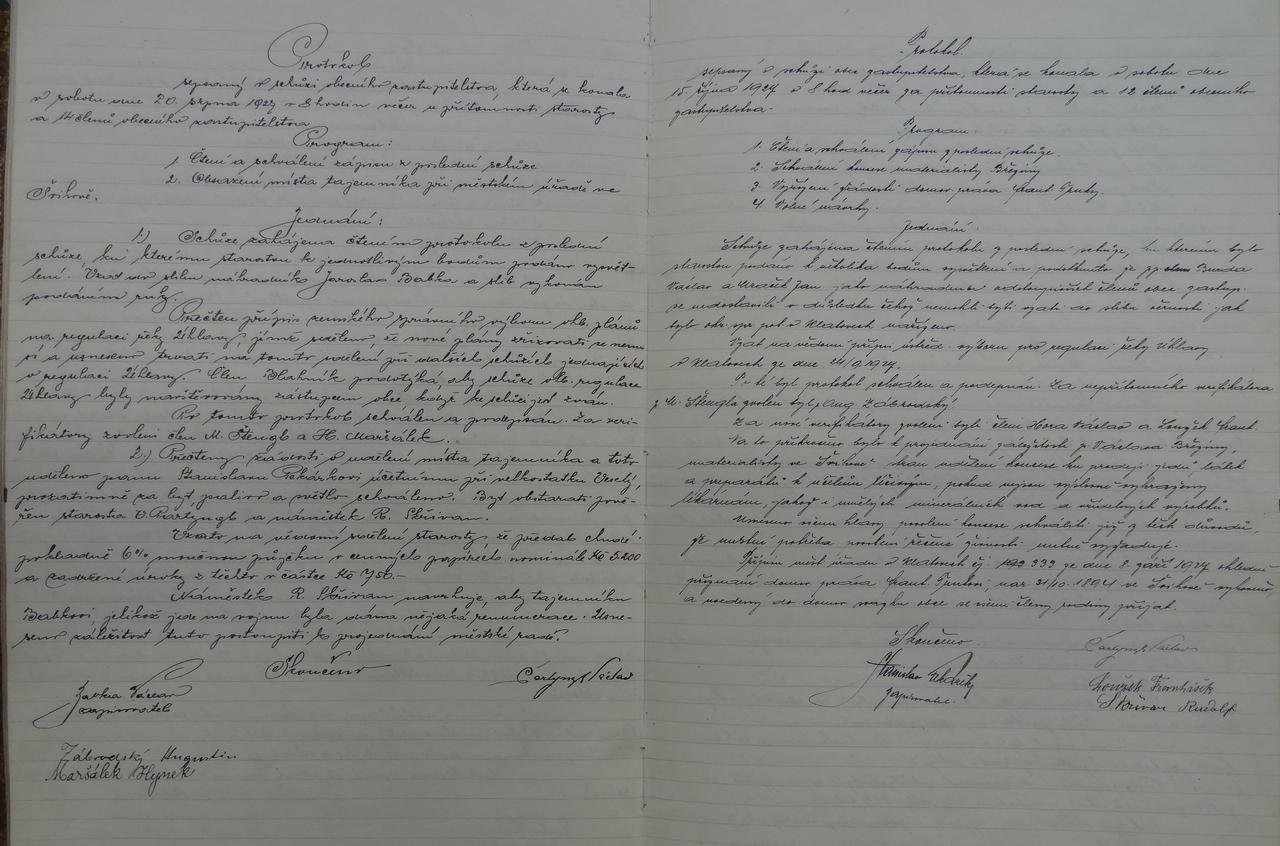 Protokol
sepsaný v schůzi obecního zastupitelstva, která se konala
v sobotu dne 20. srpna 1927 v 8 hodin večer u přítomnosti starosty
a 14 členů obecního zastupitelstva
Program:
1. Čtení a schválení zápisu z poslední schůze
2. Obsazení místa tajemníka při městském úřadě ve
Švihově.
Jednání:
1.) Schůze zahájena čtením protokolu z poslední
schůze, ku kterému starostou k jednotlivým bodům podáno vysvět-
lení. Vzad do slibu náhradník Jaroslav Babka a slib vykonán
podáním ruky.
Přečten přípis zemského správního výboru ohl. plánů
na regulaci řeky Úhlavy, jímž sděleno, že nové plány zřizovati se
a usneseno trvati na tomto sdělení při dalších schůzích jednajících
o regulaci Úhlavy. Člen Blahník podotýká, aby schůze ohl. regulace
Úhlavy byly navštěvovány zástupcem obce když ke schůzi jest zván.
Po tomto protokol schválen a podepsán. Za veri-
fikátory zvoleni člen M. Stengl a H. Maršálek.
2.) Přečteny žádosti o udělení místa tajemníka a toto
uděleno panu Stanislavu Pekárkovi účetnímu při velkostatku Veselý,
prozatímně za byt palivo a světlo schváleno. Byt obstarati pově-
řen starosta V. Partyngl a náměstek R. Skřivan.
Vzato na vědomí sdělení starosty, že předal chudé
pokladně 6% mověnou půjčku v cenných papírech nominále Kč 5.200
a zadržené úroky z těchto v částce Kč 756.-
Náměstek R. Skřivan navrhuje, aby tajemníku
Babkovi, jelikož jde na vojnu byla dána nějaká renumerace. Usne-
seno záležitost tuto postoupiti k projednání městské radě.
Skončeno
Partyngl Václav
Václav
zapisovatel
Zábrodský Augustin
Maršálek Hynek
Protokol.
sepsaný v schůzi obec. zastupitelstva, která se konala v sobotu dne
15. října 1927 v 8 hod večer za přítomnosti starosty a 12 členů obecního
zastupitelstva.
Program:
1. Čtení a schválení zápisu z poslední schůze.
2. Schválení koncese materialisty Březiny
3. Vyřízení žádosti domov. práva Frant.
4. Volné návrhy.
Jednání.
Schůze zahájena čtením protokolu z poslední schůze, ku kterému bylo
starostou podáno k několika bodům vysvětlení a podotknuto, že pp.
Václav a Jan jako náhradníci odstoupivších členů obec. zastup.
se nedostavili v důsledku čehož nemohli býti vzati do slibu věrnosti jak
bylo okr. spr. pol. v Klatovech nařízeno.
Vzat na vědomí přípis výboru pro regulaci řeky Úhlavy
v Klatovech ze dne 24/9. 1927.
Po té byl protokol schválen a podepsán. Za nepřítomného verifikátora
p. M. Stengla zvolen byl p. Aug. Zábrodský.
Za nové verifikátory zvoleni byli člen Hora Václav a Loužek Frant.
Na to přikročeno bylo k projednání záležitosti p. Václava Březiny,
materialisty ve Švihově stran udělení koncese ku prodeji jedů látek
a preparátů k účelům léčivým, pokud nejsou výlučně vyhrazeny
lékárnám, jakož i umělých minerálních vod a výrobků.
Usneseno všemi hlasy povolení koncese schváliti její z těch důvodů,
že místní potřeba povolení řečené živnosti nutně vyžaduje.
Přípisu úřadu v Klatovech čj. 192 333 ze dne 8. září 1927 ohledně
přiznání domov. práva Frant. nar. 31/10. 1894 ve Švihově vyhověno
a uvedený do domov. svazku obce se všemi členy rodiny přijat.
Skončeno.
Partyngl Václav
Stanislav Pekárek
zapisovatel.
Loužek František
Skřivan Rudolf